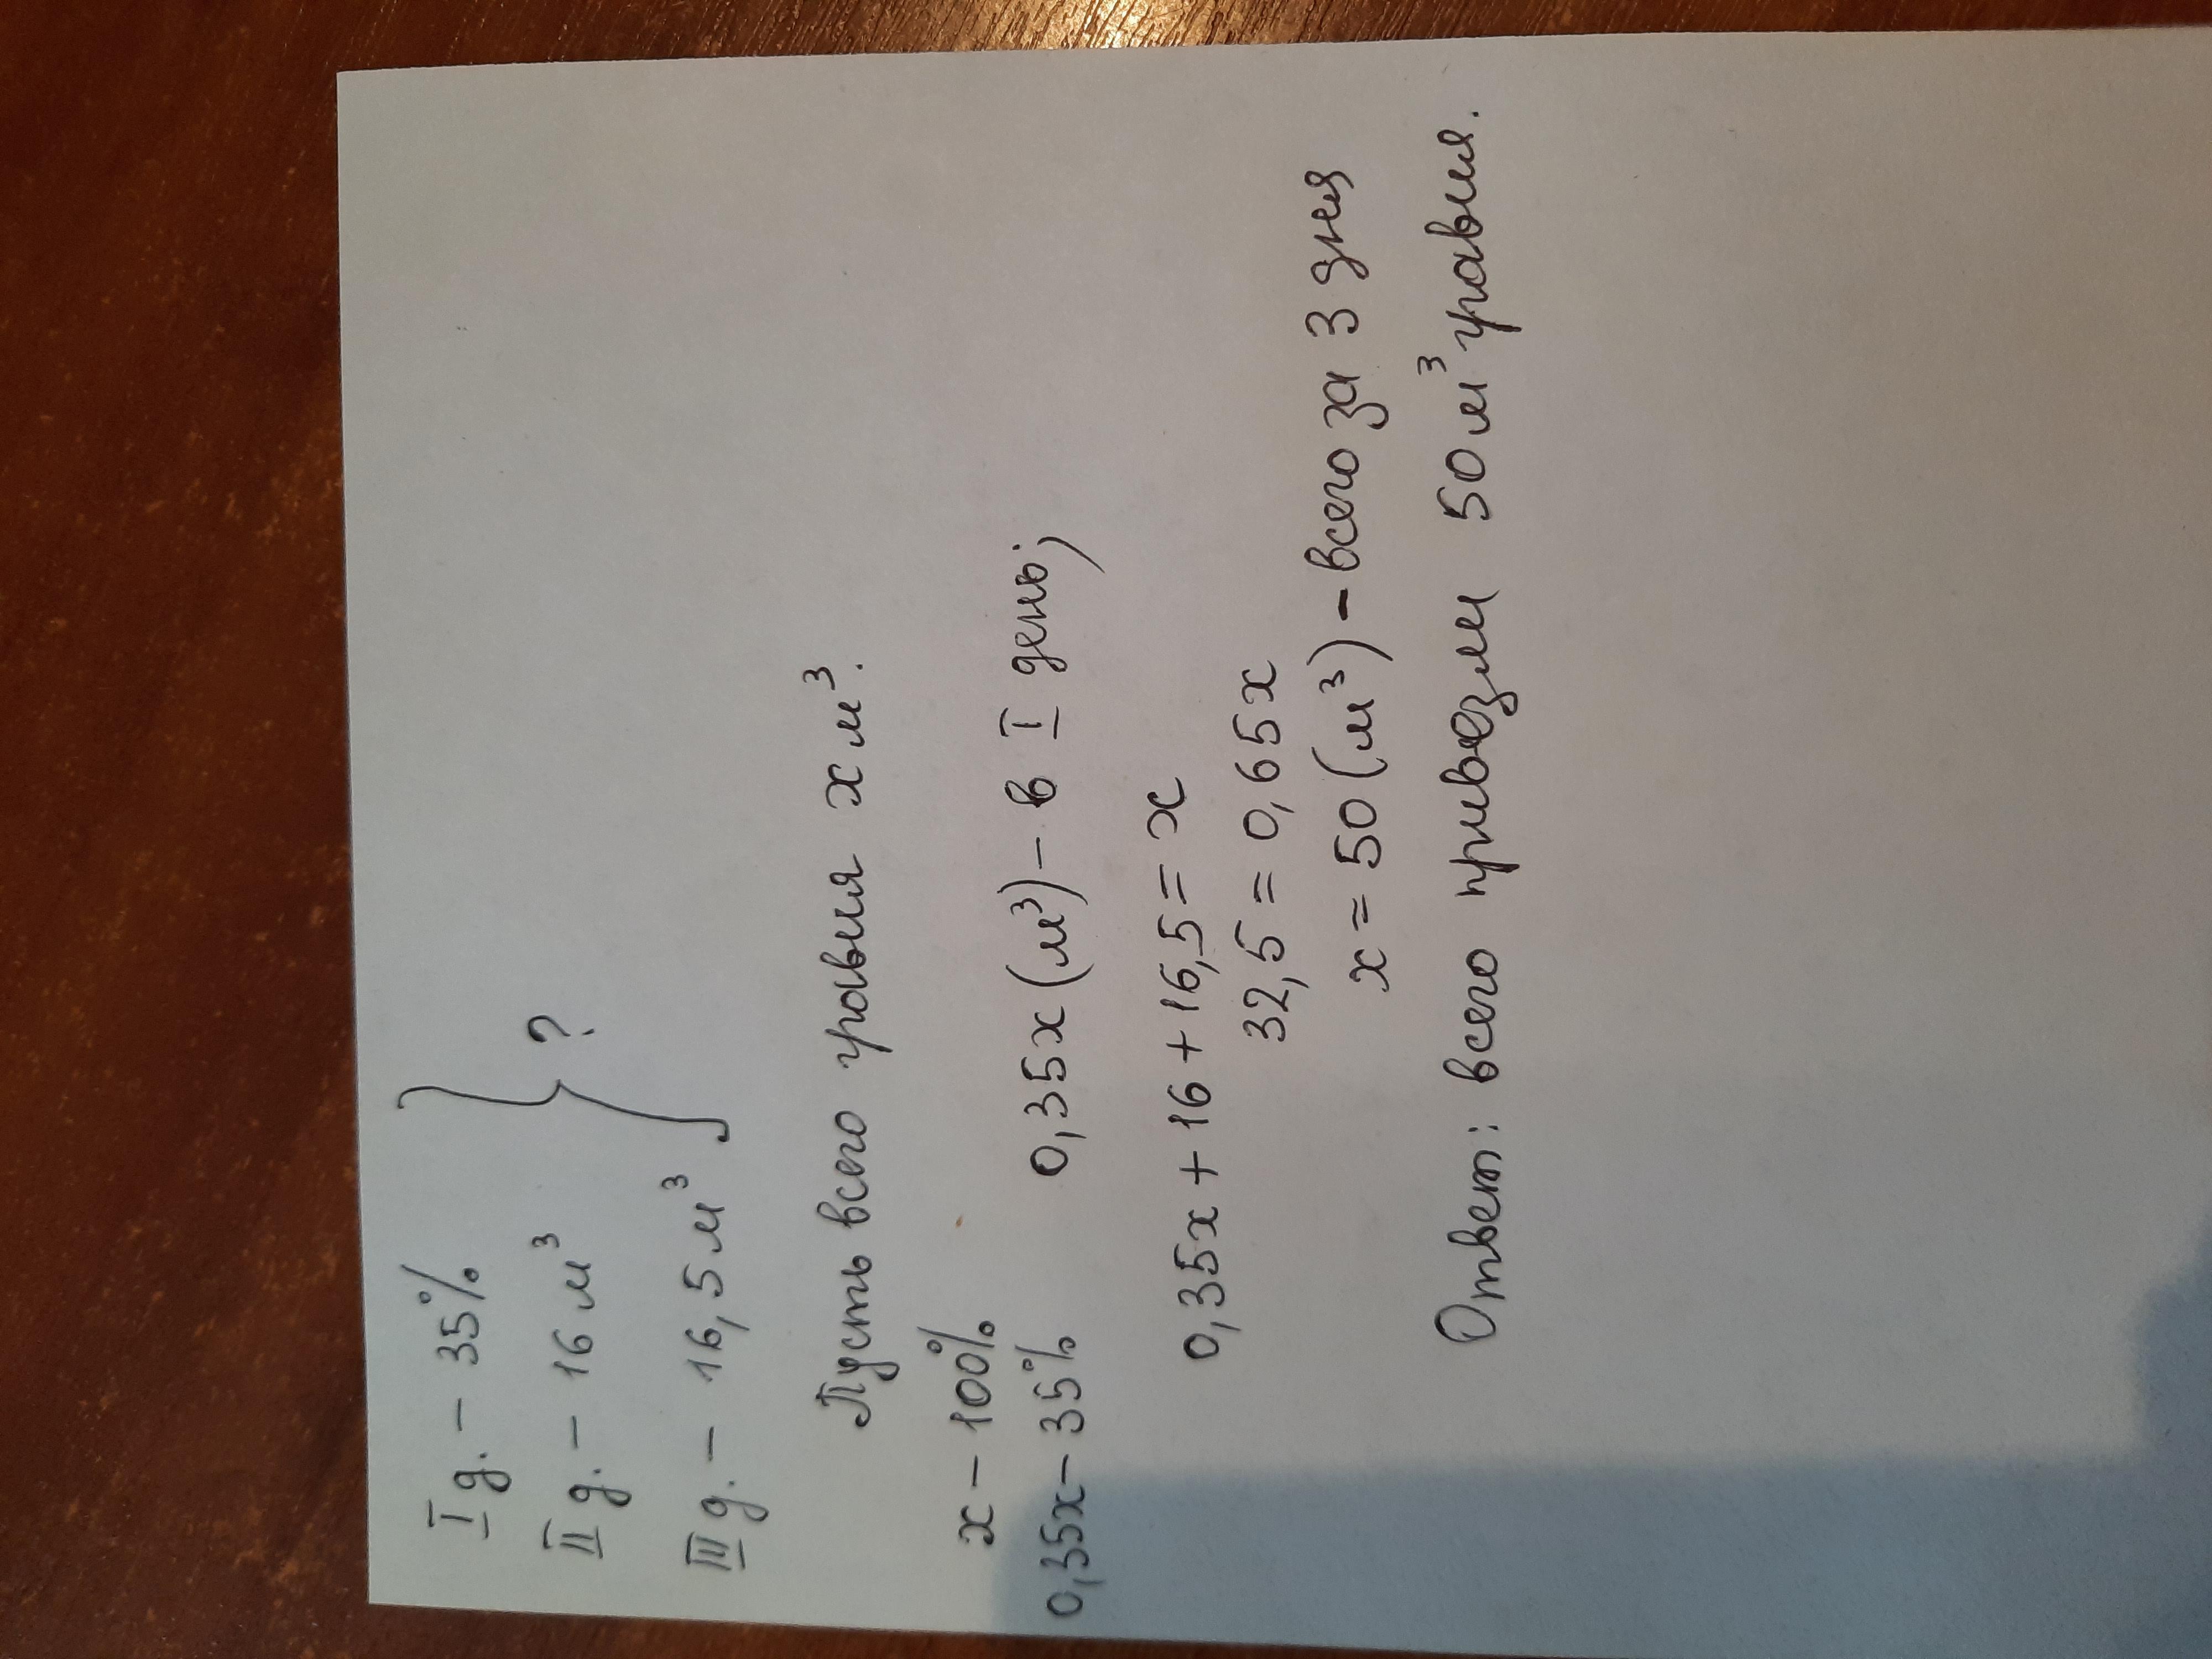 I д. – 35%
II д. – 16 м³ } ?
III д. – 16,5 м³
Пусть всего гравия x м³.
x – 100%
0,35x – 35% 0,35x (м³) – в I день;
0,35x + 16 + 16,5 = x
32,5 = 0,65x
x = 50 (м³) – всего за 3 дня
Ответ: всего привезли 50 м³ гравия.